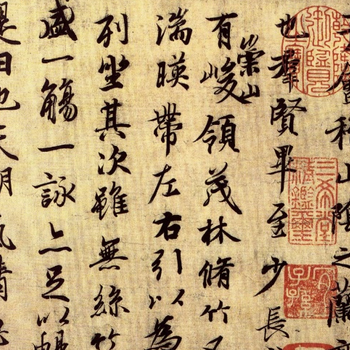 會稽山陰之蘭
也羣賢畢至少長
有崇山峻領茂林脩竹又
湍暎帶左右引以為
列坐其次雖無絲竹
盛一觴一詠亦足以暢
是日也天朗氣清